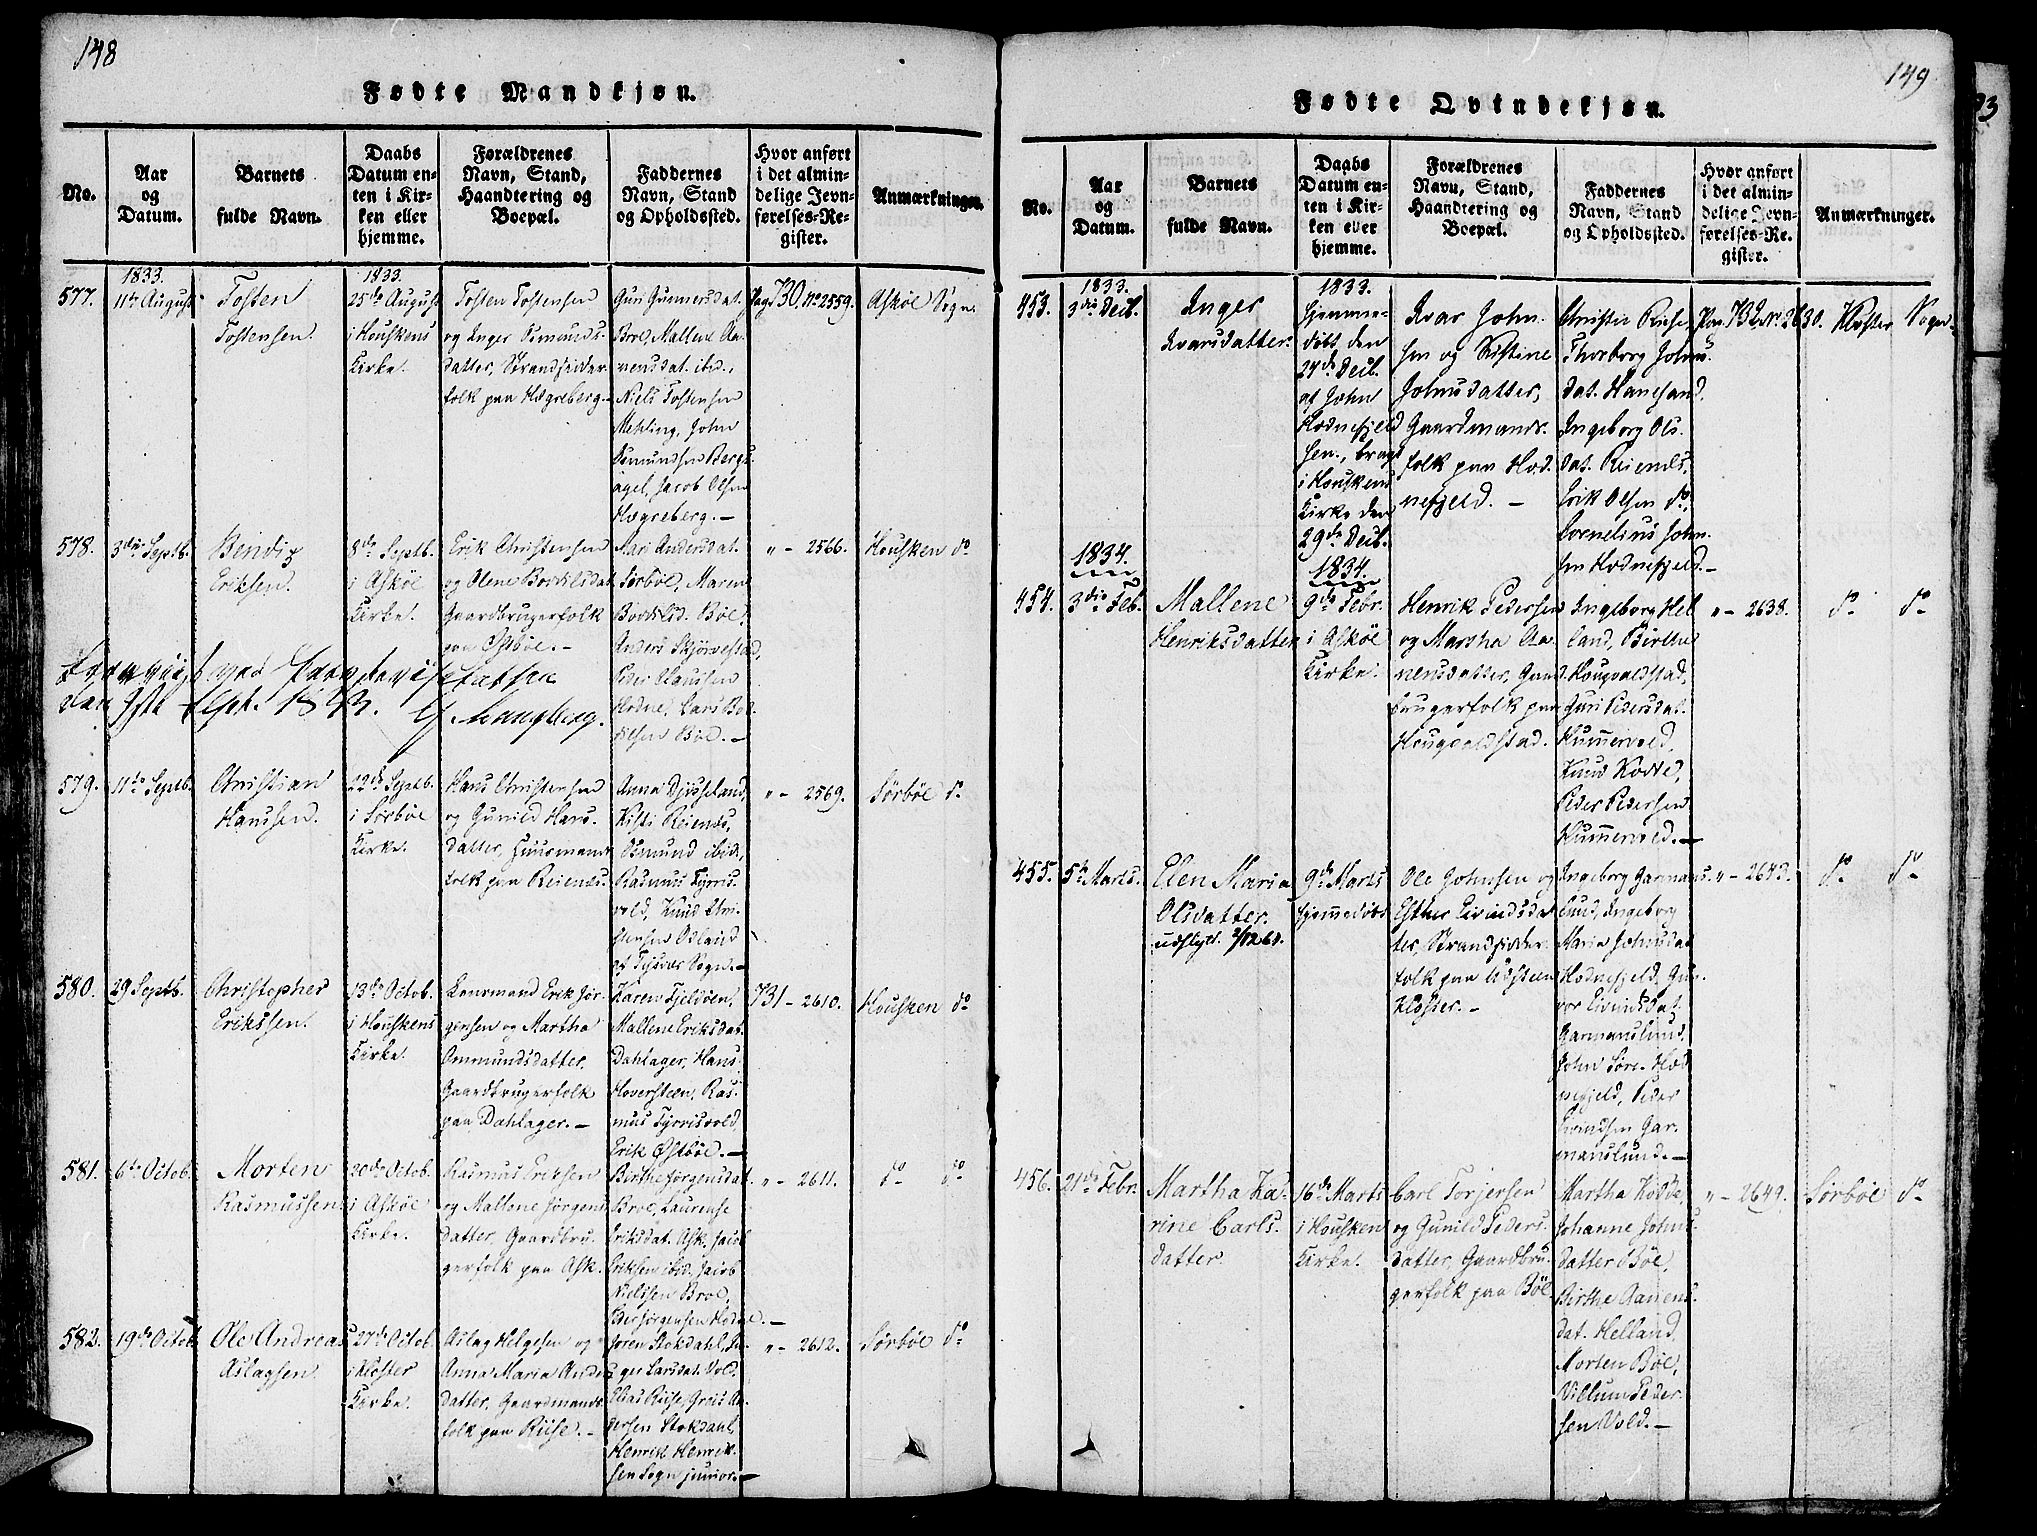 148
Fødte Mandkjøn.
No.
Aar
og
Datum.
Barnets
fulde Navn.
Daabs
Datum en-
ten i Kir-
ken eller
hjemme.
Forældrenes
Navn, Stand,
Haandtering og
Boepæl.
Faddernes
Navn, Stand
og Opholdssted.
Hvor anført
i det almin-
delige Jevn-
førelses-Re-
gister.
Anmærkninger.
577.
1833.
11te August
Tosten
Tostensen.
1833.
25de August
i Houskens
Kirke.
Tosten Tostensen
og Inger Osmunds
datter, Strandsidder
folk paa Hægreberg.
Guri Gunnersdat.
Broe, Mallene Aa-
nensdat. ibid.,
Niels Tostensen
Mehling, John
Osmundsen Bergs-
agel, Jacob Olsen
Hægreberg.—
Pag 730. No 2559.
Askøe Sogn.
578.
3die Septb.
Bendix
Eriksen.
8de Septb.
i Askøe
Kirke.
Erik Christensen
og Olene Bodilsdat
Gaardbrugerfolk
paa Østbøe.—
Mari Andersdat.
Sørbøe, Maren
Bodilsd. Bøe,
Anders Skjørvestad,
Peder Hansen
Hodne, Lars Bod-
ilsen Bøe.—
" - 2566.
Housken do
579.
11te Septb.
Christian
Hanssen.
22de Septb.
i Sørbøe
Kirke.
Hans Christensen
og Gunild Hans-
datter, Huusmands
folk paa Reienes.
Anna Djuseland,
Kisti Reienes,
Osmund ibid.,
Rasmus Tyrris-
vold, Knud Chri-
stensen Odland
af Tysvær Sogn.—
" - 2569.
Sørbøe do
580.
29 Septb.
Christopher
Erikssen.
13de Octob.
i Houskens
Kirke.
Lensmand Erik Jør-
gensen og Martha
Ommundsdatter,
Gaardbrugerfolk
paa Dahlager.—
Karen Fjeldøen,
Mallene Eriksdat.
Dahlager, Hans
Hoversteen, Ras-
mus Tyrrisvold,
Erik Østbøe.—
731 - 2610.
Housken do
581.
6te Octob.
Morten
Rasmussen
20de Octob.
i Askøe
Kirke.
Rasmus Eriksen
og Mallene Jørgens
datter, Gaardbru-
gerfolk paa Ask.
Birthe Jørgensdat.
Broe, Laurense
Eriksdat. Ask, Jacob
Eriksen ibid. Jacob
Nielssen Broe,
Peder Jørgensen Hodne.—
" - 2611.
do do
582.
19de Octob
Ole Andreas
Aslagsen.
27de Octob.
i Kloster
Kirke.
Aslag Helgesen og
Anna Maria Anders
datter, Gaardmands
folk paa Riise.—
Joren Stokdahl, In-
ger Larsdat. Vold,
Elias Riise, Greis An-
dersen Stokdahl,
Henrik Henrik-
sen Sogn junior.—
" - 2612.
Sørbøe do
149
Fødte Qvindekjøn.
No.
Aar
og
Datum.
Barnets
fulde Navn.
Daabs
Datum en-
ten i Kir-
ken eller
hjemme.
Forældrenes
Navn, Stand,
Haandtering og
Boepæl.
Faddernes
Navn, Stand
og Opholdssted.
Hvor anført
i det almin-
delige Jevn-
førelses-Re-
gister.
Anmærkninger.
453.
1833.
3die Decb.
Inger
Ivarsdatter.
1833.
Hjemme-
døbt den
24de Decb.
af John
Hodnefjeld
sen., bragt
i Houskens
Kirke den
29de Decb.
Ivar John-
sen og Kistine
Johnsdatter,
Gaardmands-
folk paa Hod-
nefjeld.—
Christie Riise,
Thorborg Johns-
dat. Hanesand.
Ingeborg Ols-
dat. Reienes,
Erik Olsen do,
Cornelius John-
sen Hodnefjeld.—
Pag. 732 No. 2630.
Kloster Sogn
454.
1834.
3die Feb.
Mallene
Henriksdatter
1834.
9de Febr.
i Askøe
Kirke.
Henrik Pedersen
og Martha Aa-
nensdatter, Gaard-
brugerfolk paa
Hougvaldstad.
Ingeborg Hel-
land, Birthe
Hougvaldstad,
Guri Pedersdat.
Hummervold,
Knud Kodde,
Peder Pedersen
Hummervold.—
" - 2638.
do do
455.
5te Marts.
Elen Maria
Olsdatter.
9de Marts
Hjemmedøbt
Ole Johnsen og
Esther Eivindsdat
ter, Strandsidder
folk paa Udsteen
Kloster.—
Ingeborg Garmans-
lund, Ingeborg
Maria Johnsdat.
Hodnefjeld, Gun-
vor Eivindsdat.
Garmanslund,
John Søre-Hod-
nefjeld, Peder
Eivindsen Gar-
manslund.—
" - 2643.
do do
456.
21de Febr.
Martha Ka-
rine Carls-
datter.
16de Marts
i Housken
Kirke.
Carl Torjersen
og Gunild Peders-
datter, Gaardbru-
gerfolk paa Bøe.
Martha Kodde,
Johanne Johns-
datter Bøe,
Birthe Aanens-
dat. Helland,
Morten Bøe,
Villum Peder-
sen Vold.—
" - 2649.
Sørbøe do